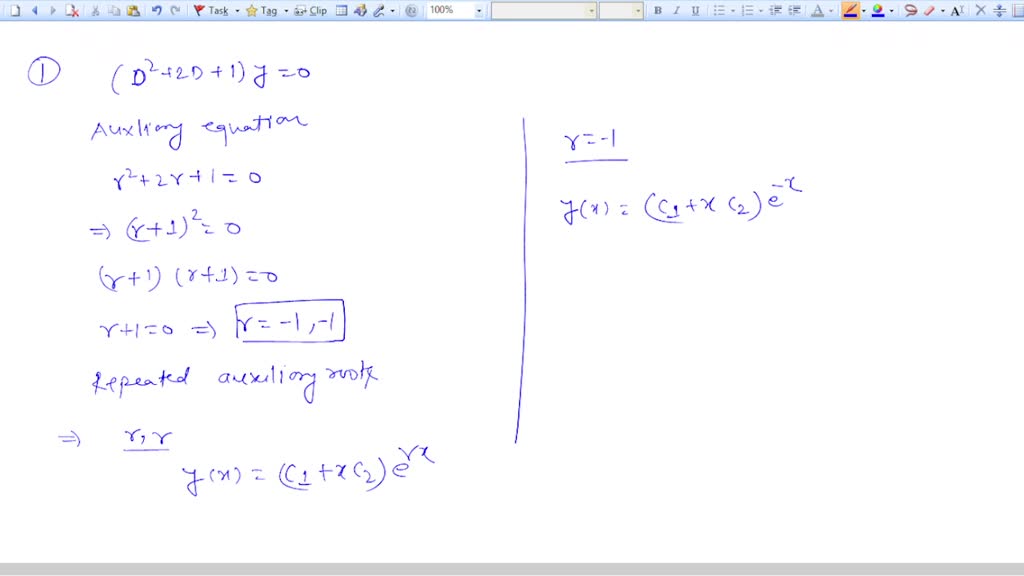 Task Tag Clip 100% B I U A A
① (D²+2D+1)y=0
Auxliary equation
r²+2r+1=0
⇒ (r+1)²=0
(r+1) (r+1)=0
r+1=0 ⇒ r=-1,-1
Repeated auxiliary roots
⇒ r, r
y(x) = (C₁+xC₂)e^{rx}
r=-1
y(x) = (C₁+x C₂)e^{-x}